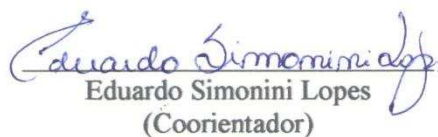 Eduardo Simonini Lopes
Eduardo Simonini Lopes
(Coorientador)